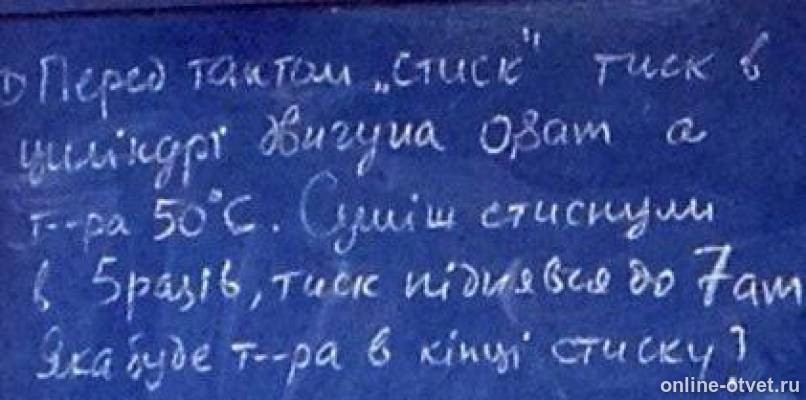 1) Перед тактом „стиск" тиск в
циліндрі двигуна 0,8ат а
т--ра 50°С. Суміш стиснули
в 5разів, тиск піднявся до 7ат
Яка буде т--ра в кінці стиску?
online-otvet.ru